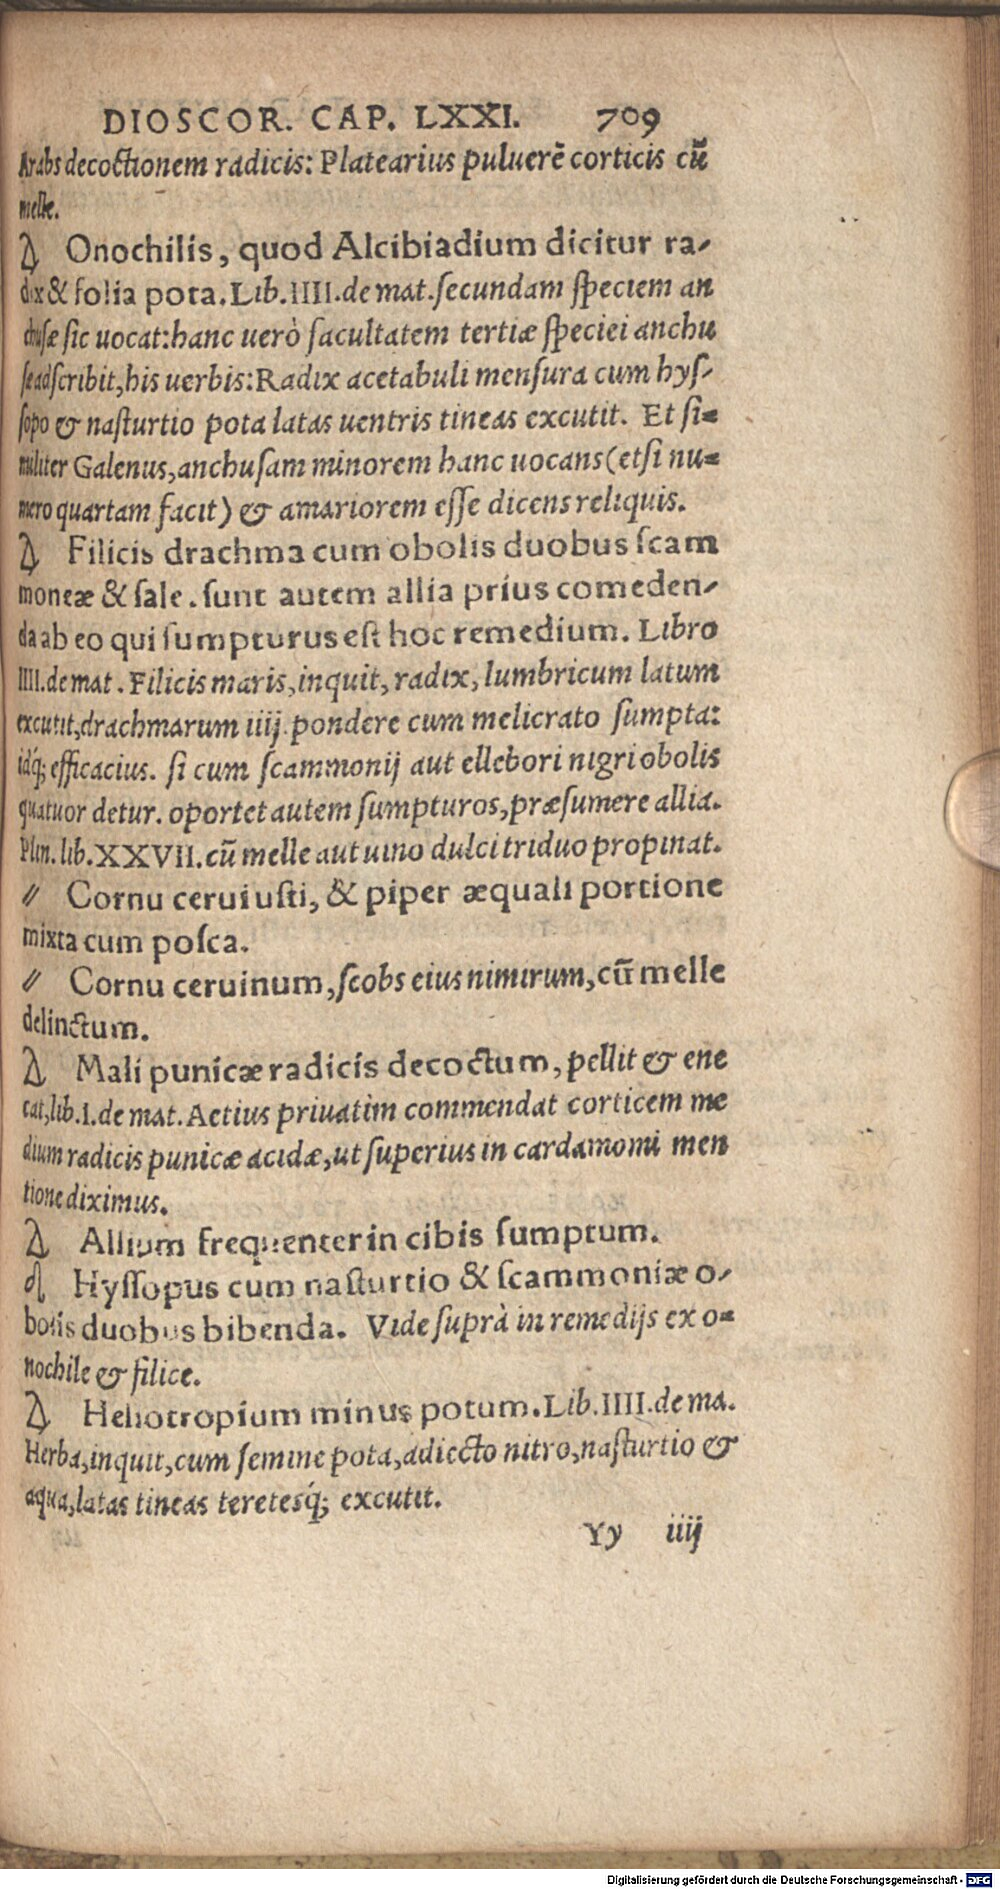 DIOSCOR. CAP. LXXI. 709
Arabs decoctionem radicis: Platearius puluerē corticis cū
melle.
Onochilis, quod Alcibiadium dicitur ra-
dix & folia pota. Lib. IIII. de mat. secundam speciem an
chusæ sic uocat: hanc uerò facultatem tertiæ speciei anchu
sæ adscribit, his uerbis: Radix acetabuli mensura cum hys-
sopo & nasturtio pota latas uentris tineas excutit. Et si=
militer Galenus, anchusam minorem hanc uocans (etsi nu=
mero quartam facit) & amariorem esse dicens reliquis.
Filicis drachma cum obolis duobus scam
moneæ & sale. sunt autem allia prius comeden-
da ab eo qui sumpturus est hoc remedium. Libro
IIII. de mat. Filicis maris, inquit, radix, lumbricum latum
excutit, drachmarum iiij. pondere cum melicrato sumpta:
idq́; efficacius. si cum scammonij aut ellebori nigri obolis
quatuor detur. oportet autem sumpturos, præsumere allia.
Plin. lib. XXVII. cū melle aut uino dulci triduo propinat.
〃 Cornu cerui usti, & piper æquali portione
mixta cum posca.
〃 Cornu ceruinum, scobs eius nimirum, cū melle
delinctum.
Mali punicæ radicis decoctum, pellit & ene
cat, lib. I. de mat. Aetius priuatim commendat corticem me
dium radicis punicæ acidæ, ut superius in cardamomi men
tione diximus.
Allium frequenter in cibis sumptum.
Hyssopus cum nasturtio & scammoniæ o-
bolis duobus bibenda. Vide suprà in remedijs ex o=
nochile & filice.
Heliotropium minus potum. Lib. IIII. de ma.
Herba, inquit, cum semine pota, adiecto nitro, nasturtio &
aqua, latas tineas teretesq́; excutit.
Yy iiij
Digitalisierung gefördert durch die Deutsche Forschungsgemeinschaft - DFG